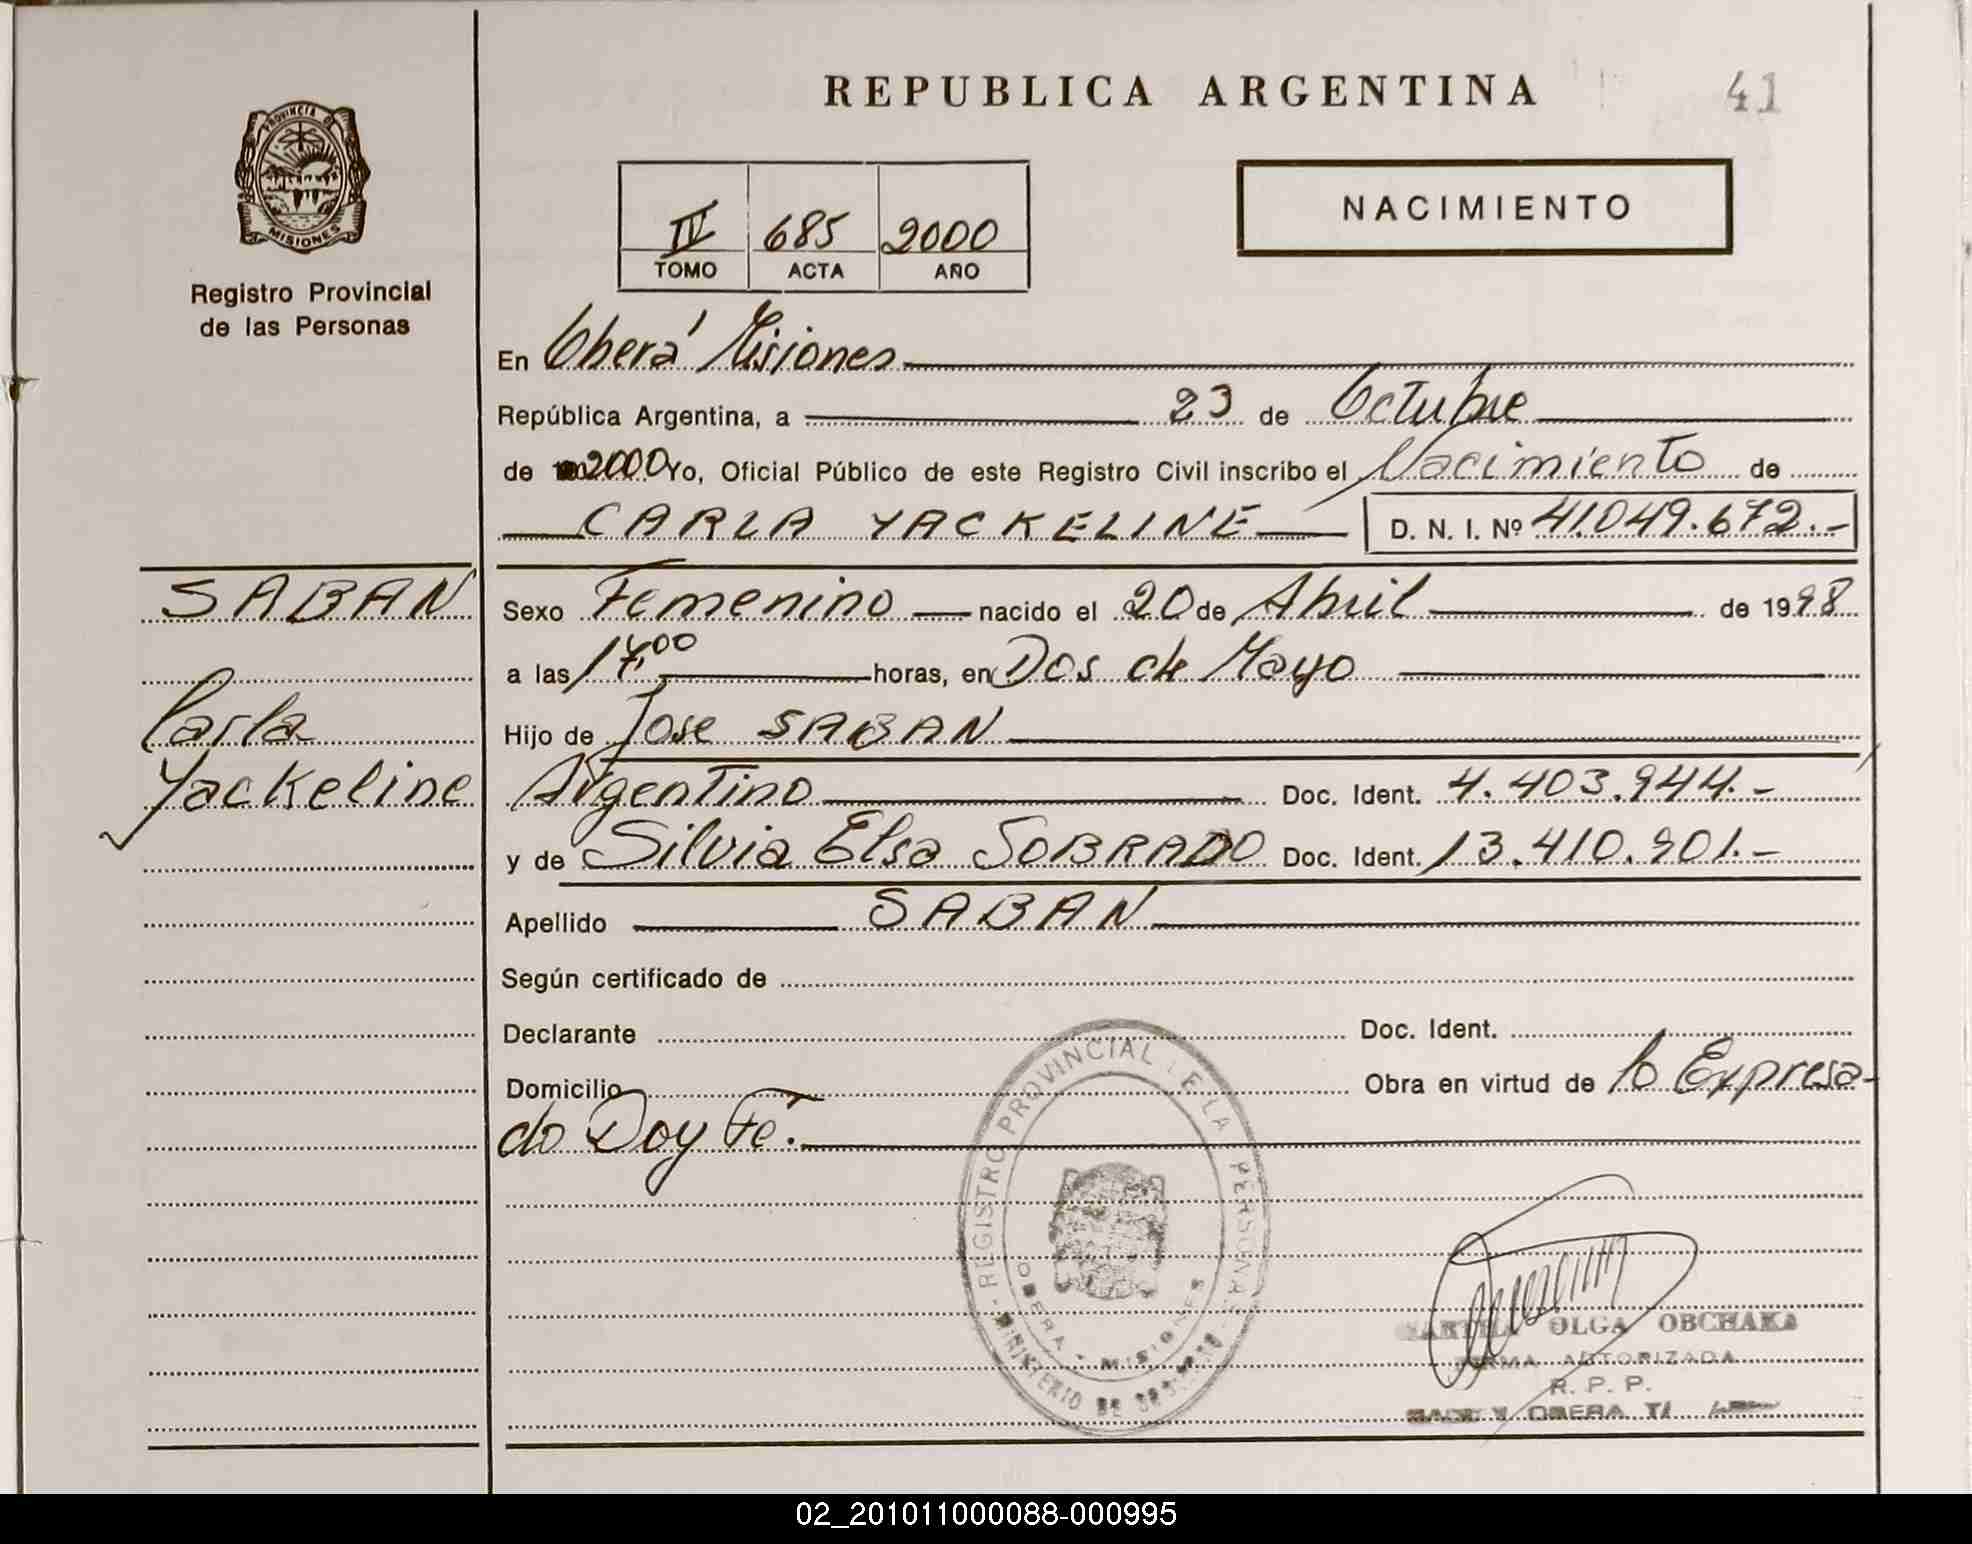 REPUBLICA ARGENTINA
41
PROVINCIA DE
MISIONES
Registro Provincial
de las Personas
IV 685 2000
TOMO ACTA AÑO
NACIMIENTO
En Oberá Misiones
República Argentina, a 23 de Octubre
de 2000 Yo, Oficial Público de este Registro Civil inscribo el Nacimiento de
CARLA YACKELINE D. N. I. Nº 41.049.672.-
SABAN
Carla
Yackeline
Sexo Femenino nacido el 20 de Abril de 1998
a las 17,00 horas, en Dos de Mayo
Hijo de Jose SABAN
Argentino Doc. Ident. 4.403.944.-
y de Silvia Elsa SOBRADO Doc. Ident. 13.410.901.-
Apellido SABAN
Según certificado de
Declarante Doc. Ident.
Domicilio Obra en virtud de lo Expresa-
do Doy Fé.
REGISTRO PROVINCIAL DE LA PERSONAS
OBERA - MISIONES
MINISTERIO DE
OLGA OBCHAKA
FIRMA AUTORIZADA
R. P. P.
OBERA
02_201011000088-000995